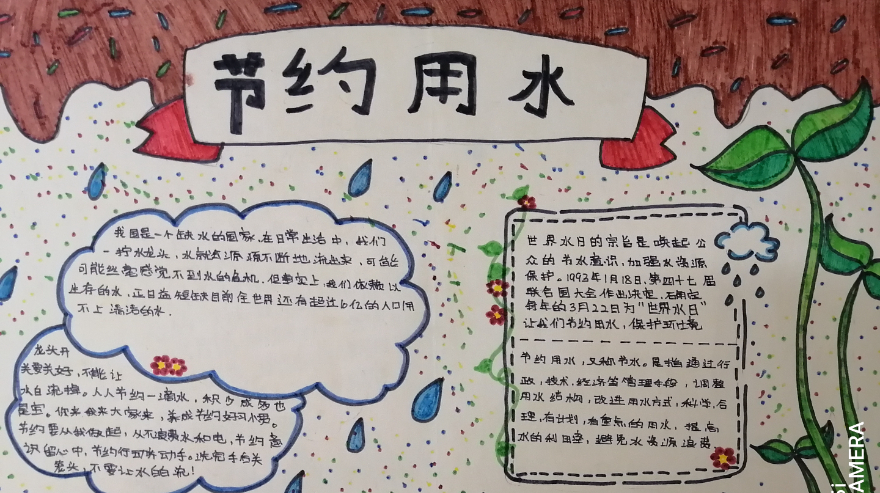 节约用水
我国是一个缺水的国家，在日常生活中，我们
拧水龙头，水就源源不断地流出来，可能
可能丝毫感觉不到水的危机。但事实上，我们依赖以
生存的水，正日益短缺目前全世界还有超过6亿的人口用
不上清洁的水。
龙头开
关要关好，不能让
水白流掉。人人节约一滴水，积少成多也
是宝。你来我来大家来，养成节约好习惯。
节约要从我做起，从不浪费水和电，节约意
识留心中，节约行动再动手。洗完手后关
龙头，不要让水白流！
世界水日的宗旨是唤起公
众的节水意识，加强水资源
保护。1993年1月18日，第四十七届
联合国大会作出决定，确定
每年的3月22日为“世界水日”
让我们节约用水，保护环境
节约用水，又称节水。是指通过行
政，技术，经济等管理手段，调整
用水结构，改进用水方式，科学，合
理，有计划，有重点的用水，提高
水的利用率，避免水资源浪费
AMERA